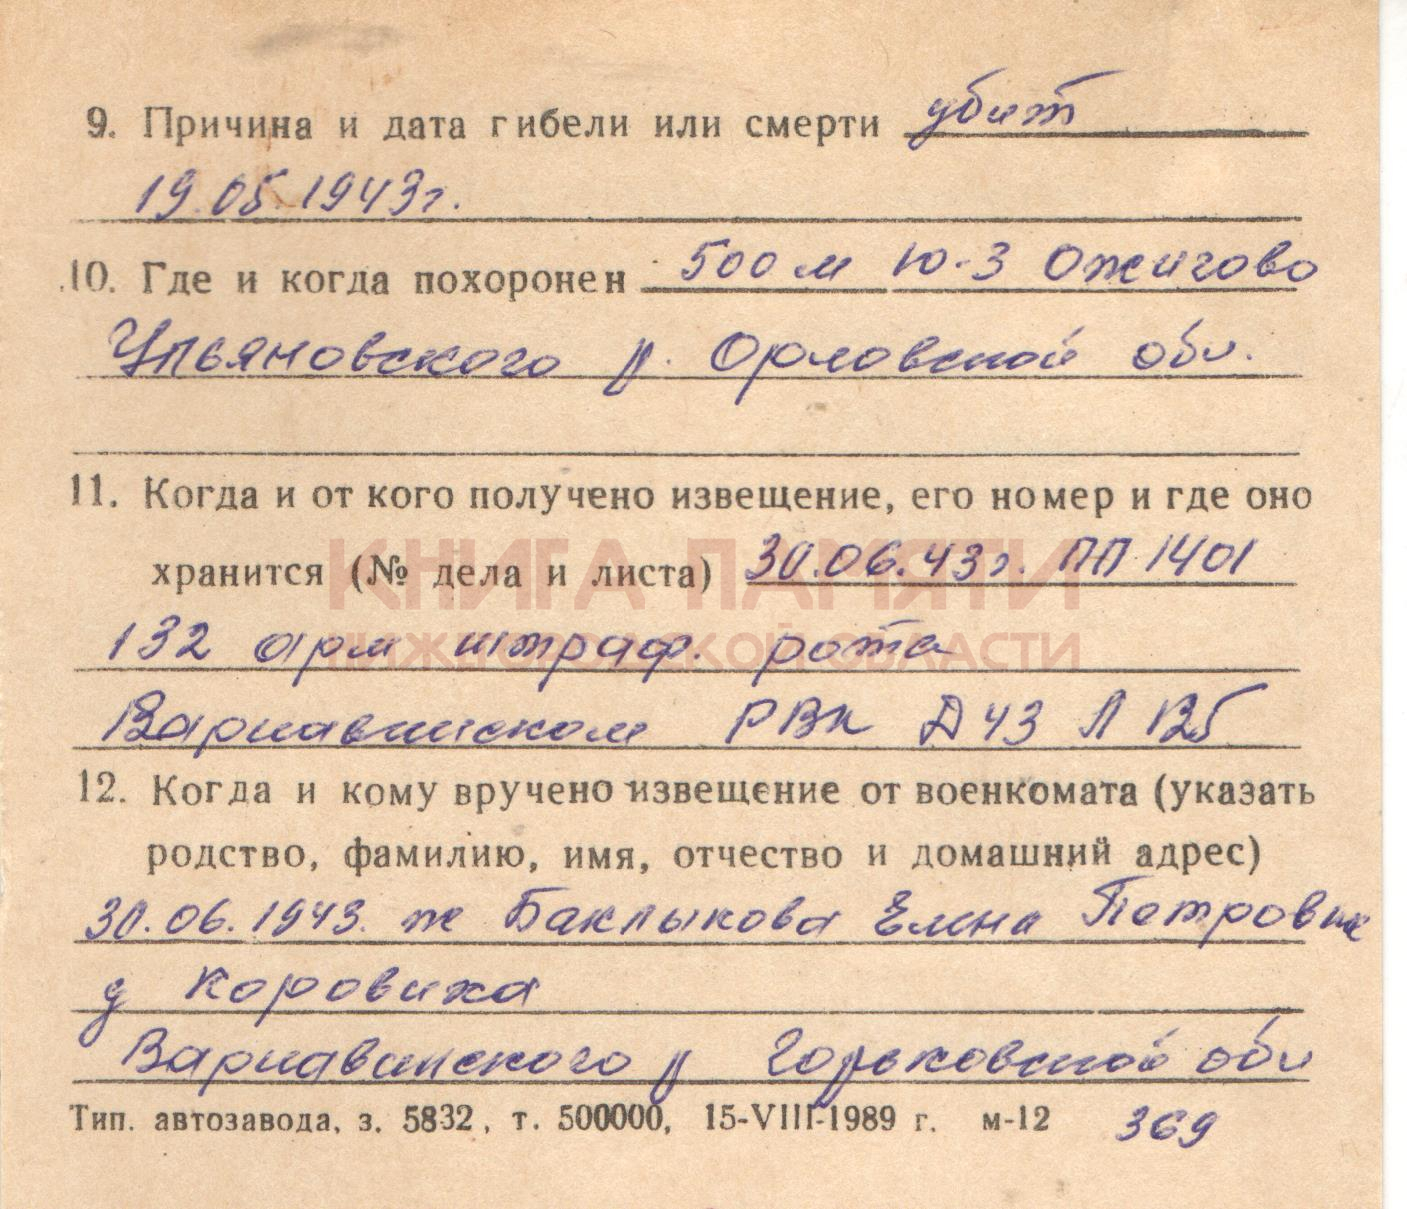 9. Причина и дата гибели или смерти убит
19.05.1943г.
10. Где и когда похоронен 500 м Ю-З Ожигово
Ульяновского р. Орловской обл.
11. Когда и от кого получено извещение, его номер и где оно
хранится (№ дела и листа) 30.06.43г. ПП 1401
КНИГА ПАМЯТИ
132 арм штраф. рота
НИЖЕГОРОДСКОЙ ОБЛАСТИ
Варнавинском РВК Д 43 Л 125
12. Когда и кому вручено извещение от военкомата (указать
родство, фамилию, имя, отчество и домашний адрес)
30.06.1943. ж Баклыкова Елена Петровна
д Коровиха
Варнавинского р Горьковской обл
Тип. автозавода, з. 5832, т. 500000, 15-VIII-1989 г. м-12 369